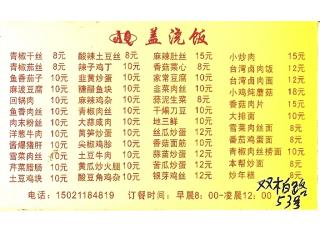 盖浇饭
青椒干丝 8元 酸辣土豆丝 8元 麻辣肚丝 15元 小炒肉 15元
青椒茄丝 8元 辣子鸡丁 10元 香菇菜心 8元 台湾卤肉饭 12元
鱼香茄子 10元 韭黄炒蛋 10元 家常豆腐 10元 台湾卤肉面 12元
麻波豆腐 10元 糖醋鱼块 10元 韭菜肉丝 10元 小鸡炖蘑菇 18元
回锅肉 10元 麻辣鸡杂 10元 蒜泥生菜 8元 香菇肉片 15元
鱼香肉丝 10元 青椒肉丝 10元 干煸刀豆 10元 大排面 10元
肉末粉丝 10元 大蒜咸肉 10元 地三鲜 10元 雪菜肉丝面 8元
洋葱牛肉 10元 莴笋炒蛋 10元 丝瓜炒蛋 12元 番茄鸡蛋面 8元
酱爆猪肝 10元 尖椒鸡胗 10元 香菇面筋 10元 青椒肉丝捞面 10元
雪菜肉丝 10元 土豆牛肉 10元 蒜苗炒蛋 12元 本帮炒面 8元
芹菜腊肠 10元 黄瓜炒火腿 10元 苦瓜炒蛋 12元 炒年糕 8元
土豆鸡块 10元 酸豆角鸡杂 10元 银芽鸡丝 12元
电话：15021184819 订餐时间：早晨8：00-凌晨12：00
双柏路
53号